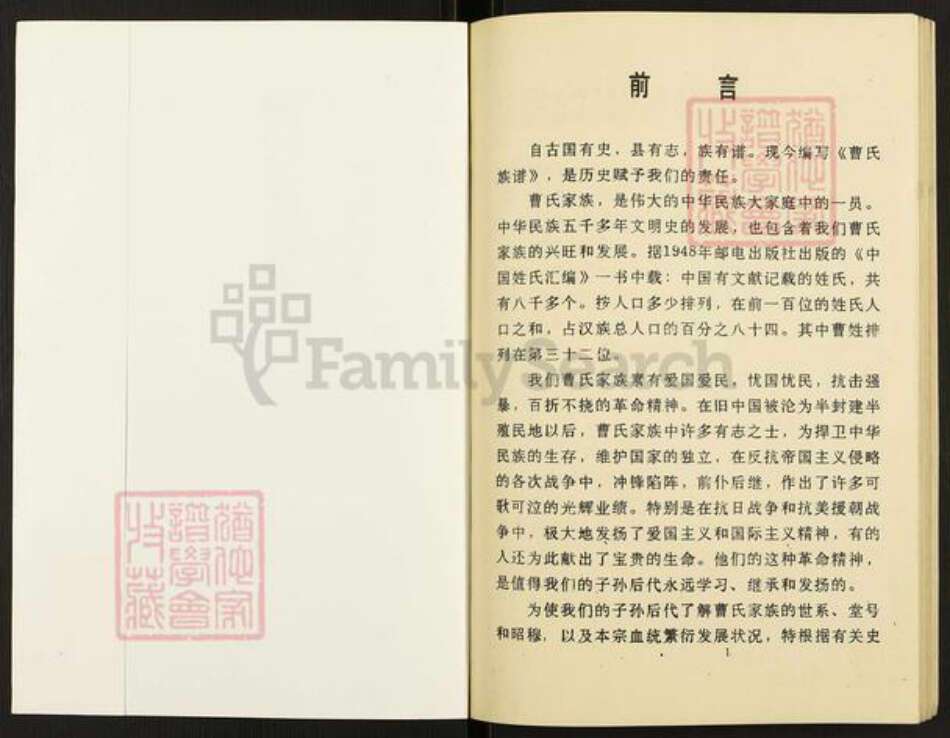 前 言
自古国有史，县有志，族有谱。现今编写《曹氏
族谱》，是历史赋予我们的责任。
曹氏家族，是伟大的中华民族大家庭中的一员。
中华民族五千多年文明史的发展，也包含着我们曹氏
家族的兴旺和发展。据1948年邮电出版社出版的《中
国姓氏汇编》一书中载：中国有文献记载的姓氏，共
有八千多个。按人口多少排列，在前一百位的姓氏人
口之和，占汉族总人口的百分之八十四。其中曹姓排
列在第三十二位。
我们曹氏家族素有爱国爱民，忧国忧民，抗击强
暴，百折不挠的革命精神。在旧中国被沦为半封建半
殖民地以后，曹氏家族中许多有志之士，为捍卫中华
民族的生存，维护国家的独立，在反抗帝国主义侵略
的各次战争中，冲锋陷阵，前仆后继，作出了许多可
歌可泣的光辉业绩。特别是在抗日战争和抗美援朝战
争中，极大地发扬了爱国主义和国际主义精神，有的
人还为此献出了宝贵的生命。他们的这种革命精神，
是值得我们的子孙后代永远学习、继承和发扬的。
为使我们的子孙后代了解曹氏家族的世系、堂号
和昭穆，以及本宗血统繁衍发展状况，特根据有关史
1
FamilySearch
譜學會
收藏